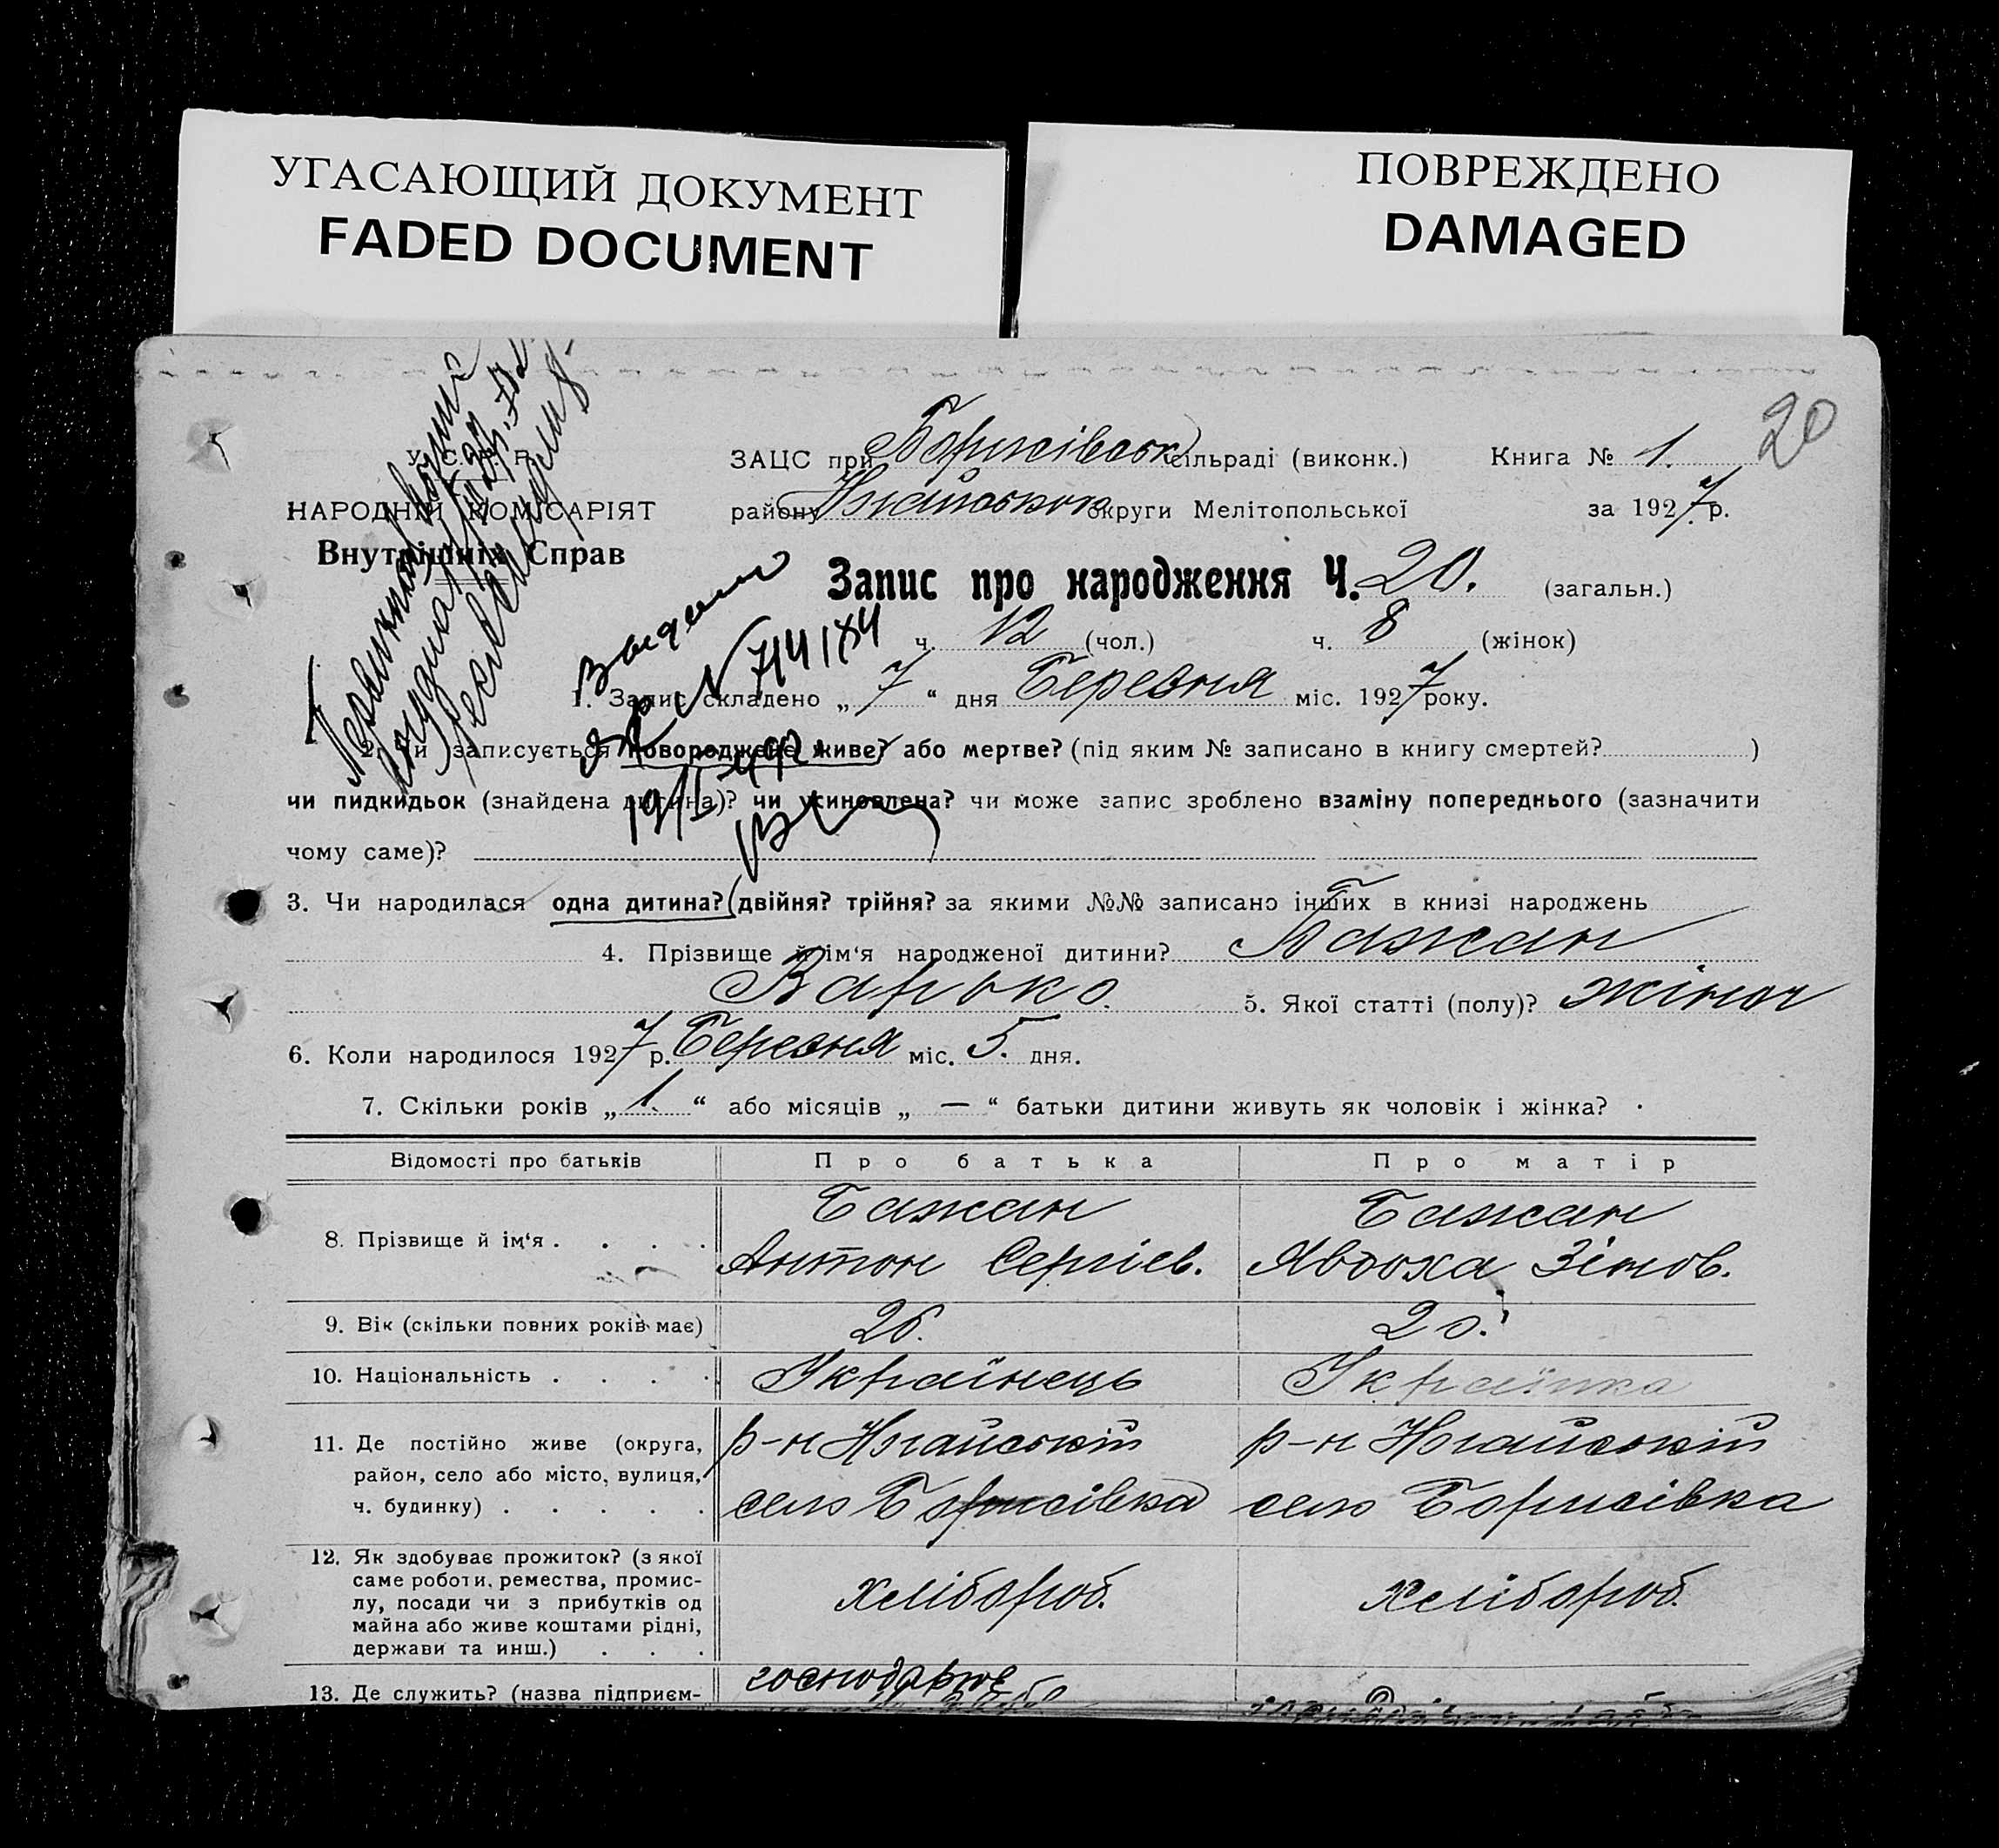 УГАСАЮЩИЙ ДОКУМЕНТ
FADED DOCUMENT
ПОВРЕЖДЕНО
DAMAGED
20
У. С. Р. Р.
НАРОДНІЙ КОМІСАРІЯТ
Внутрішніх Справ
ЗАЦС при Борисівськ сільраді (виконк.) Книга № 1.
району Ногайського округи Мелітопольської за 1927 р.
Запис про народження Ч. 20. (загальн.)
ч. 12 (чол.) ч. 8 (жінок)
Выдано
№ 714184
1. Запис складено „ 7 “ дня Березня міс. 1927 року.
2. Чи записується новороджене живе? або мертве? (під яким № записано в книгу смертей? )
чи пидкидьок (знайдена дитина)? чи усиновлена? чи може запис зроблено взаміну попереднього (зазначити
чому саме)?
3. Чи народилася одна дитина? двійня? трійня? за якими №№ записано інших в книзі народжень
4. Прізвище й ім‘я народженої дитини? Бажан
Варько. 5. Якої статті (полу)? жіноч
6. Коли народилося 1927 р. Березня міс. 5. дня.
7. Скільки років „ 1. “ або місяців „ — “ батьки дитини живуть як чоловік і жінка?
Відомості про батьків Про батька Про матір
8. Прізвище й ім‘я . . . . Бажан Антон Сергіев. Бажан Явдоха Зінов.
9. Вік (скільки повних років має) 26. 20.
10. Національність . . . . Українець Українка
11. Де постійно живе (округа, р-н Ногайській р-н Ногайській
район, село або місто, вулиця,
ч. будинку) . . . . . село Борисівка село Борисівка
12. Як здобуває прожиток? (з якої
саме роботи, ремества, промис-
лу, посади чи з прибутків од хлібороб. хлібороб.
майна або живе коштами рідні,
держави та инш.) . . .
13. Де служить? (назва підприєм-